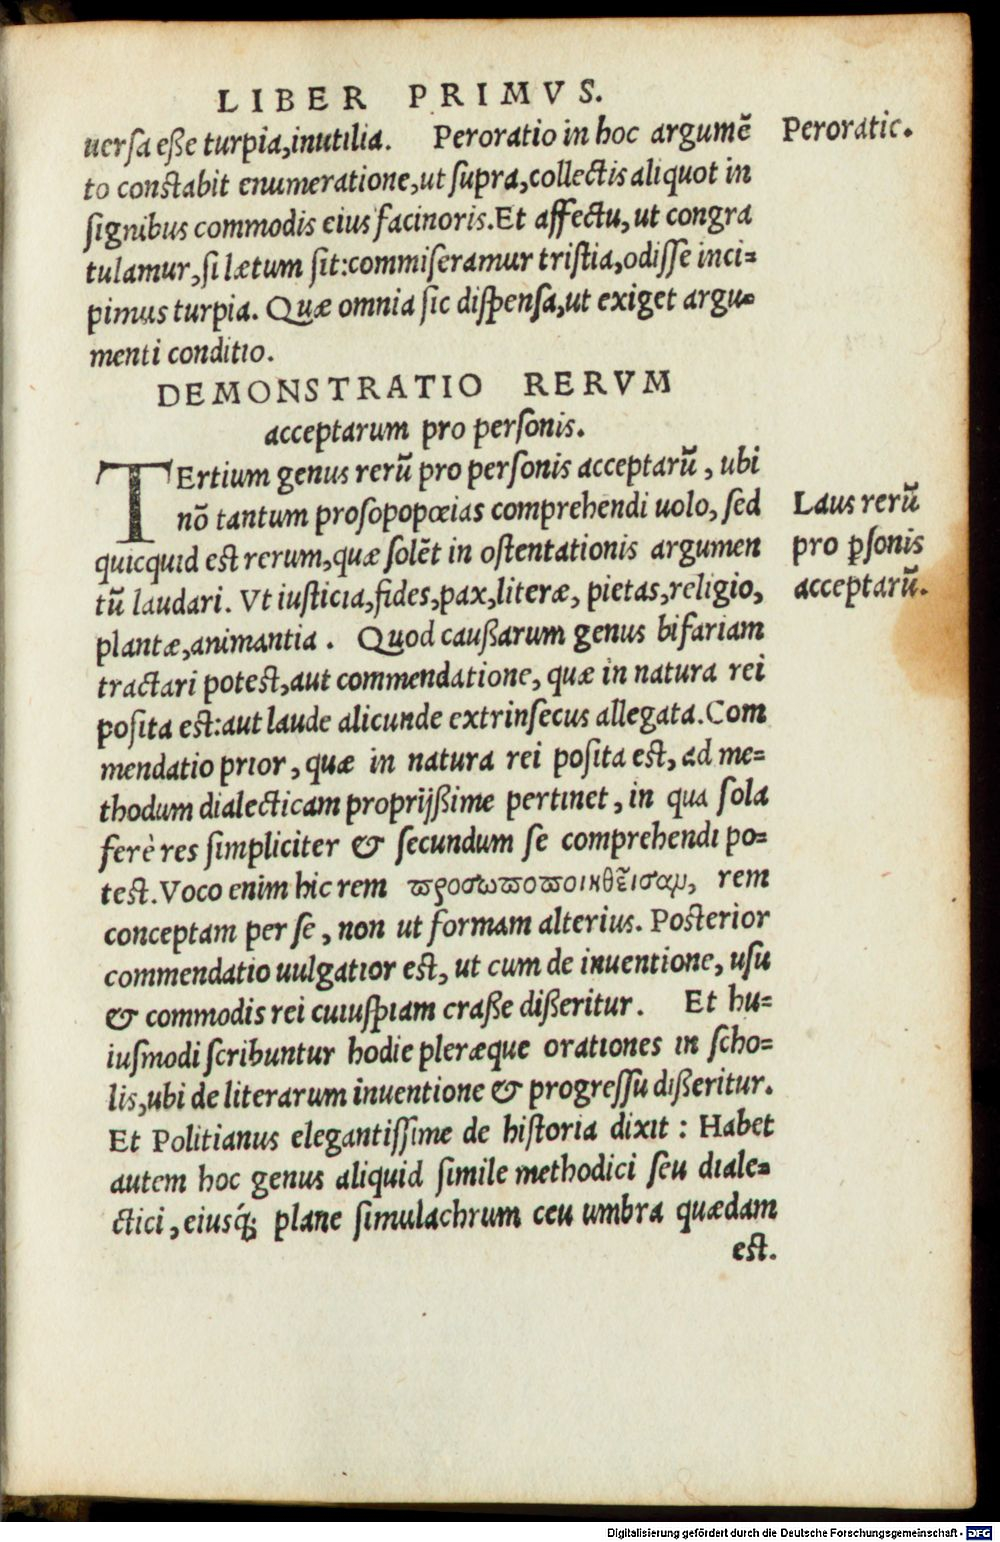 LIBER PRIMVS.
uersa eße turpia,inutilia. Peroratio in hoc argumẽ
Peroratic.
to constabit enumeratione,ut supra,collectis aliquot in
signibus commodis eius facinoris.Et affectu,ut congra
tulamur,si lætum sit:commiseramur tristia,odisse inci=
pimus turpia. Quæ omnia sic dispensa,ut exiget argu=
menti conditio.
DEMONSTRATIO RERVM
acceptarum pro personis.
TErtium genus rerũ pro personis acceptarũ, ubi
nõ tantum prosopopœias comprehendi uolo, sed
Laus rerũ
quicquid est rerum,quæ solẽt in ostentationis argumen
pro ꝑsonis
tũ laudari. Vt iusticia,fides,pax,literæ, pietas,religio,
acceptarũ.
plantæ,animantia. Quod caußarum genus bifariam
tractari potest,aut commendatione, quæ in natura rei
posita est:aut laude alicunde extrinsecus allegata.Com
mendatio prior, quæ in natura rei posita est, ad me=
thodum dialecticam proprijßime pertinet, in qua sola
ferè res simpliciter & secundum se comprehendi po=
test.Voco enim hic rem ϖροσωϖοϖοιηθεῖσαμ, rem
conceptam per se, non ut formam alterius. Posterior
commendatio uulgatior est, ut cum de inuentione, usu
& commodis rei cuiuspiam craße dißeritur. Et hu=
iusmodi scribuntur hodie pleræque orationes in scho=
lis,ubi de literarum inuentione & progressu dißeritur.
Et Politianus elegantissime de historia dixit : Habet
autem hoc genus aliquid simile methodici seu diale=
ctici, eiusq́; plane simulachrum ceu umbra quædam
est.
Digitalisierung gefördert durch die Deutsche Forschungsgemeinschaft - DFG